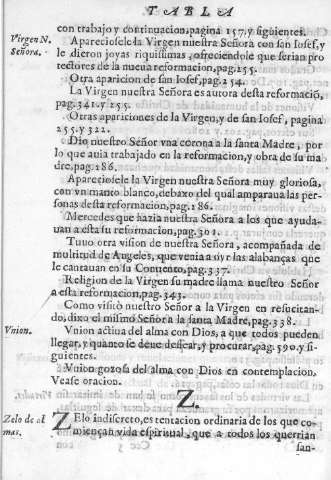 TABLA
con trabajo y continuacion, pagina 157. y siguientes.
Virgen N. Señora.
Apareciosele la Virgen nuestra Señora con san Iosef, y
le dieron joyas riquissimas, ofreciendole que serian pro
tectores de la nueua reformacion, pag. 255.
Otra aparicion de san Iosef, pag. 254.
La Virgen nuestra Señora es autora desta reformació,
pag. 341. y 255.
Otras apariciones de la Virgen, y de san Iosef, pagina
255. y 322.
Dio nuestro Señor vna corona a la santa Madre, por
lo que auia trabajado en la reformacion, y obra de su ma
dre, pag. 186.
Apareciosele la Virgen nuestra Señora muy gloriosa,
con vn manto blanco, debaxo del qual amparaua las per-
sonas desta reformacion, pag. 186.
Mercedes que hazia nuestra Señora a los que ayuda-
uan a esta su reformacion, pag. 301.
Tuuo otra vision de nuestra Señora, acompañada de
multitud de Angeles, que venia a oyr las alabanças que
le cantauan en su Conuento, pag. 337.
Religion de la Virgen su madre llama nuestro Señor
a esta reformacion, pag. 343.
Como visitò nuestro Señor a la Virgen en resucitan-
do, dixo el mismo Señor a la santa Madre, pag. 338.
Vnion.
Vnion actiua del alma con Dios, a que todos pueden
llegar, y quanto se deue dessear, y procurar, pag. 590. y si-
guientes.
Vnion gozosa del alma con Dios en contemplacion.
Vease oracion.
Z.
Zelo de al mas.
ZElo indiscreto, es tentacion ordinaria de los que co-
miençan vida espiritual, que a todos los querrian
san-